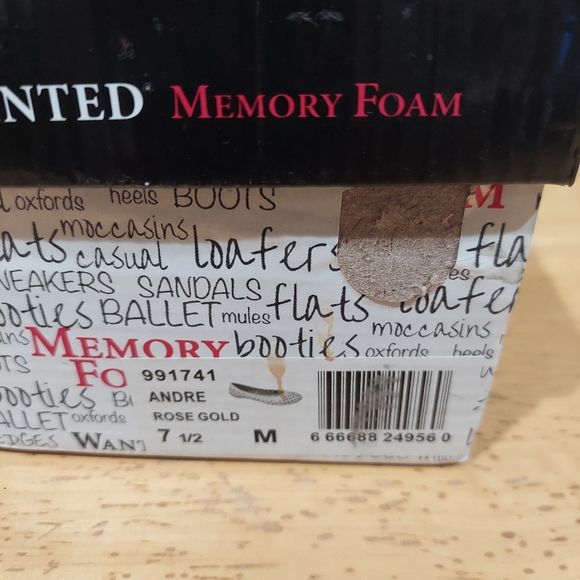 NTED® MEMORY FOAM
oxfords heels BOOTS M
moccasins
ats casual loafers fla
NEAKERS SANDALS es
ooties BALLET mules flats loafer
moccasins
MEMORY booties oxfords heels
FO
991741
ooties B ANDRE
ALLET oxfords ROSE GOLD
EDGES WANT 7 1/2 M 6 66688 24956 0